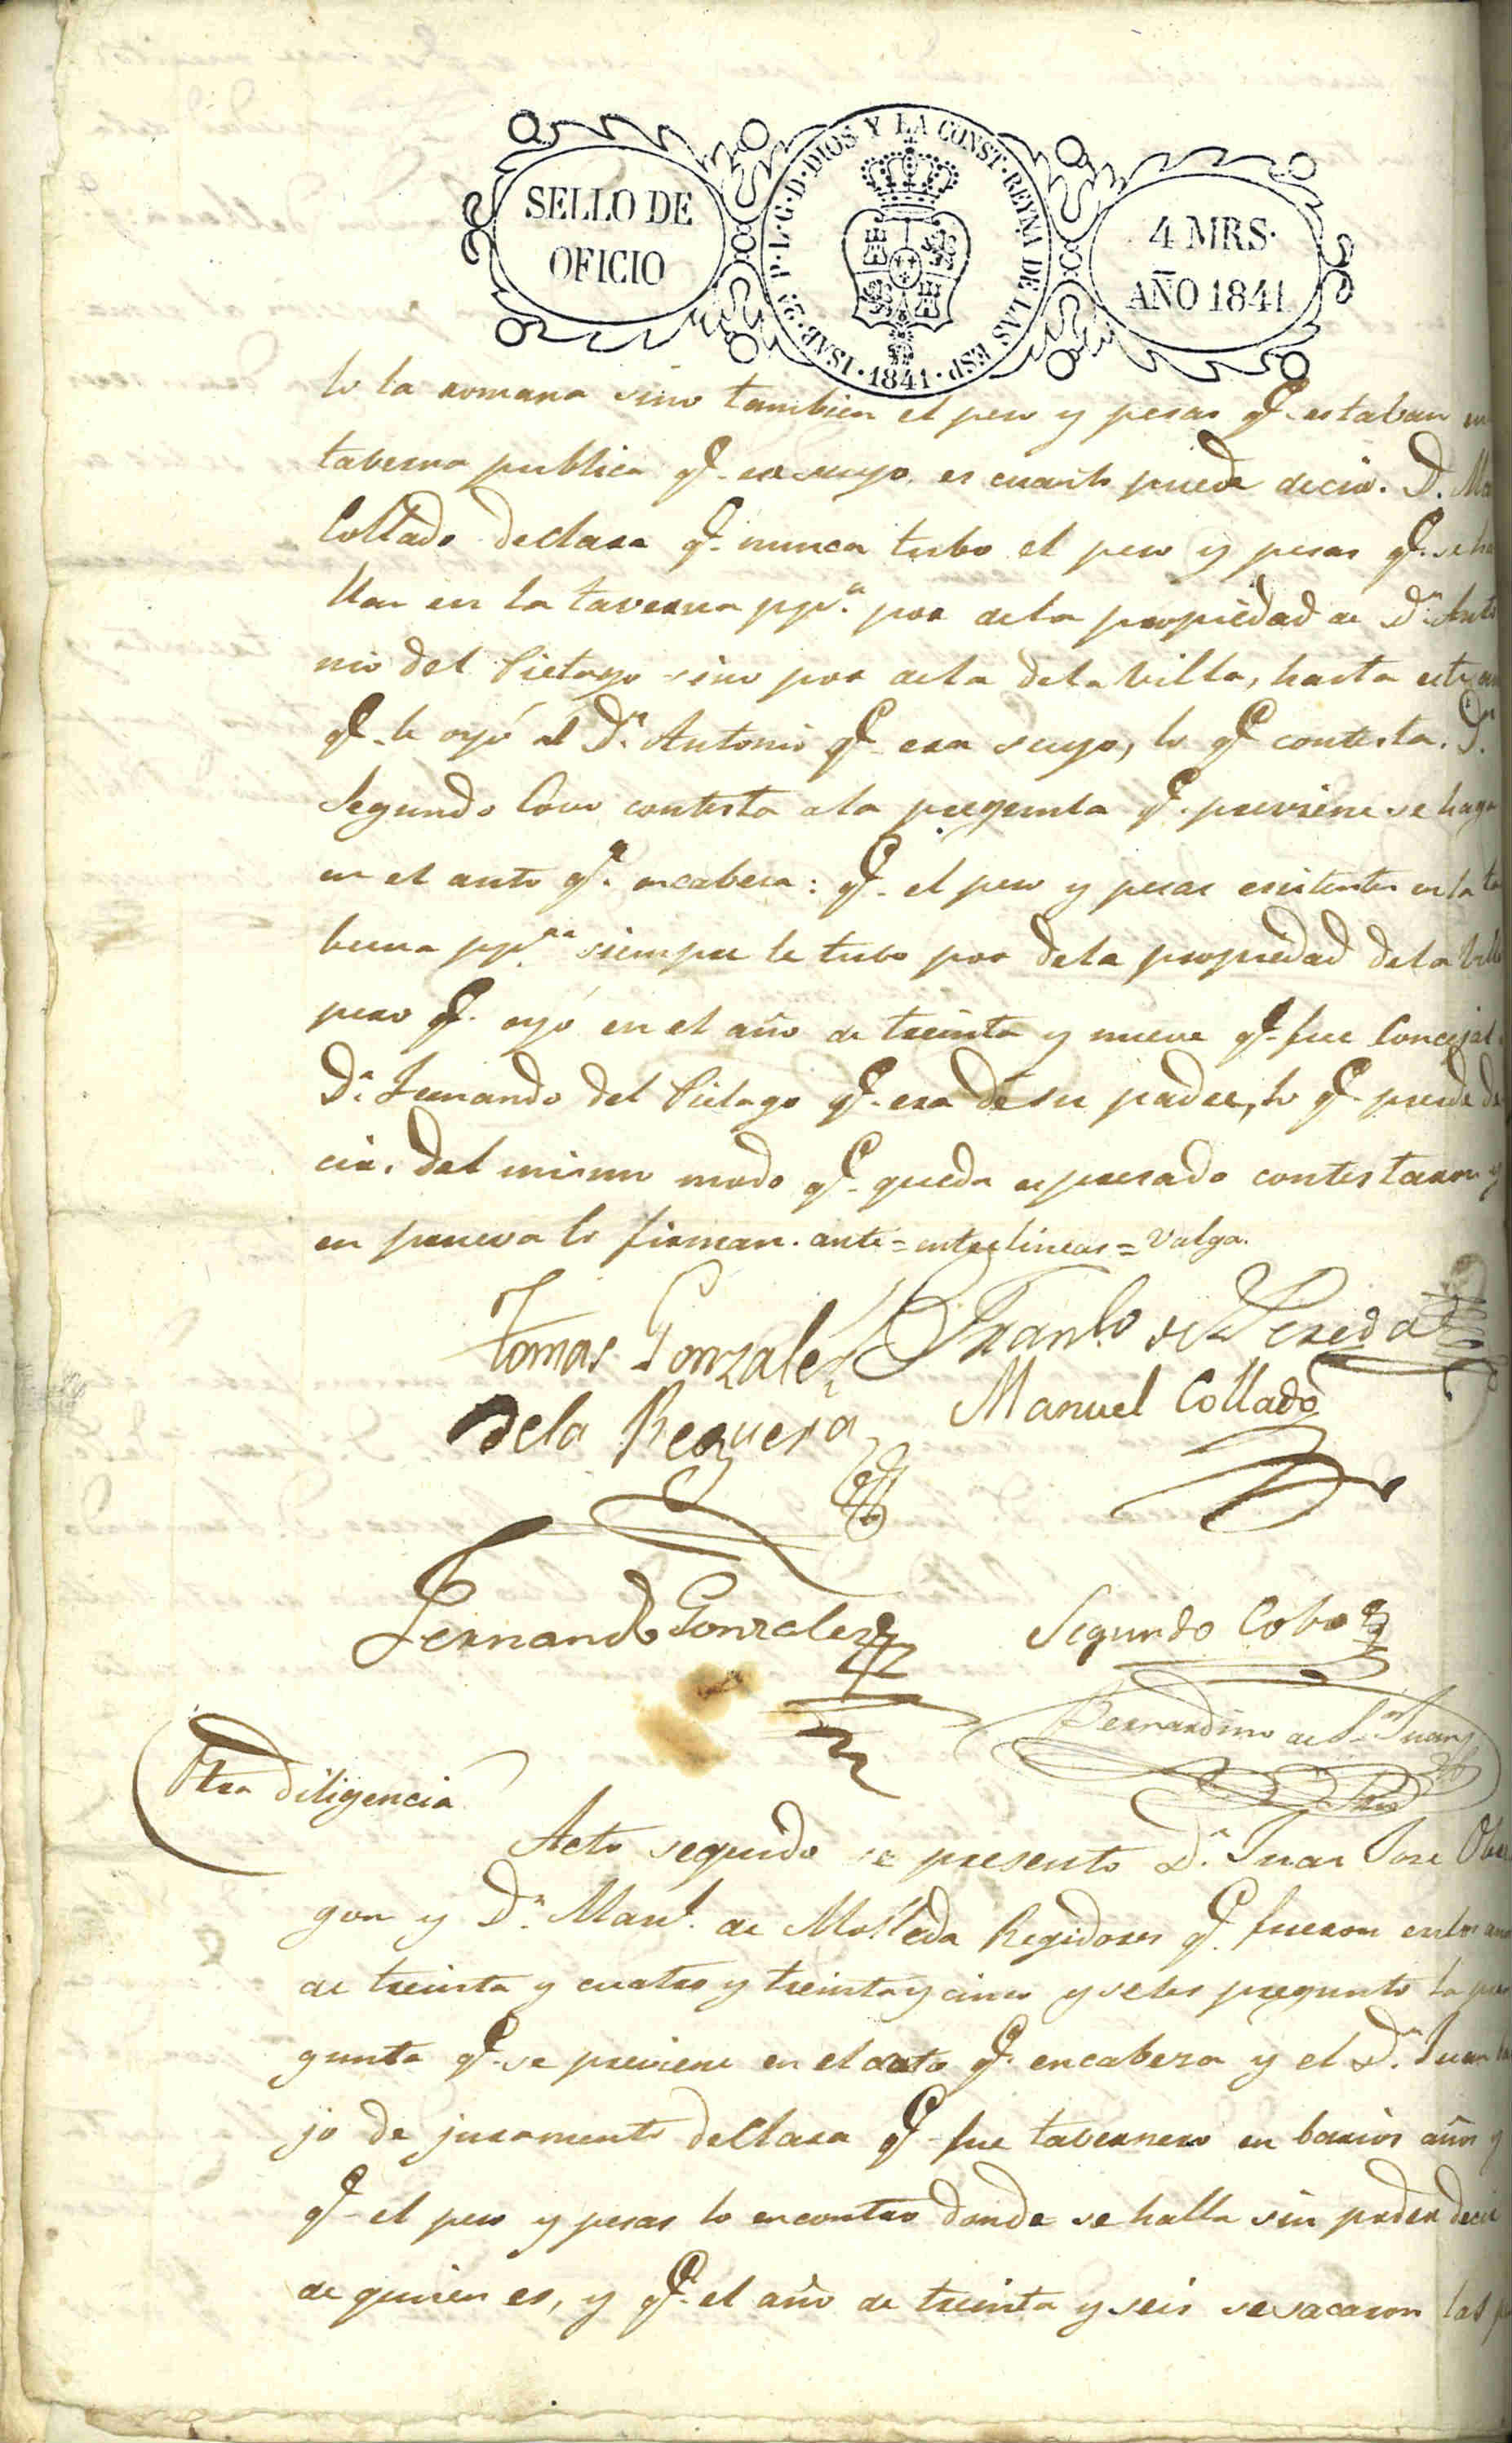 SELLO DE
OFICIO
ISAB. 2ª P. L. G. D. DIOS Y LA CONST. REYNA DE LAS ESP. 1841.
4 MRS.
AÑO 1841
lo la romana sino tambien el peso y pesas q.e estaban en
taberna publica q.e era suyo, es cuanto puede decir. D. Ma
Collado declara q.e nunca tubo el peso y pesas q.e se ha
llan en la taverna pp.ca por dela propiedad de D.n Anto
nio del Pielago sino por dela dela Villa, hasta este
q.e le oyó al D.n Antonio q.e era suyo, lo q.e contesta. D.n
Segundo Covo contesta ala pregunta q.e previene se haga
en el auto q.e encabeza: q.e el peso y pesas existentes en la ta
berna pp.ca siempre le tubo por dela propiedad dela Villa
pero q.e oyó en el año de treinta y nueve q.e fue Concejal
D.n Fernando del Pielago q.e era de su padre, lo q.e puede de
cir. del mismo modo q.e queda espresado contestaron y
en prueva lo firman. ante = entre lineas = Valga.
Tomas Gonzalez Fran.co de Pereda
dela Reguera Manuel Collado
Fernando Gonzalez Segundo Cobo
Bernardino de S.n Juan
Otra diligencia
Acto seguido se presento D.n Juan Jose Obre
gon y D.n Man.l de Molleda Regidores q.e fueron en los años
de treinta y cuatro y treinta y cinco y se les pregunto la pre
gunta q.e se previene en el auto q.e encabeza y el D.n Juan ba
jo de juramento declara q.e fue tabernero en barios años y
q.e el peso y pesas lo encontro donde se halla sin poder decir
de quien es, y q.e el año de treinta y seis se sacaron las